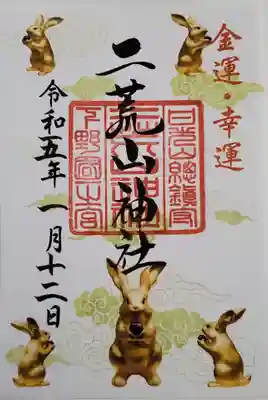 金運・幸運
二荒山神社
日光山總鎮守
下野國一之宮
令和五年一月十二日